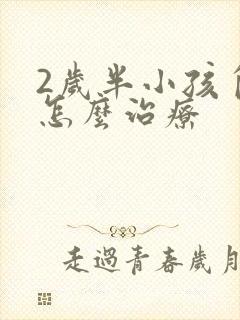 2歲半小孩
怎麼治療
走過青春歲月